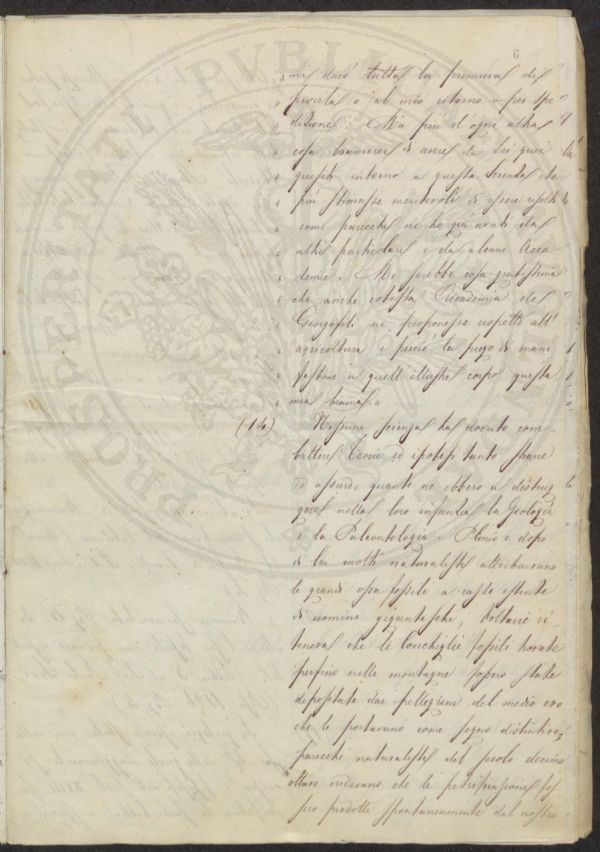 6
« mi darò tutta la premura di
« fornirla o al mio ritorno o per spe-
« dizione. Ma più d'ogni altra
« cosa bramerei di avere da Lei quei
« quesiti intorno a questa Scienza che
« più stimasse meritevoli di essere risolti
« come parecchi ne ho già avuti da
« altri particolari e da alcune Acca
« demie. Mi sarebbe cosa gratissima
« che anche cotesta Accademia dei
« Georgofili ne proponesse rispetto all'
« agricoltura e perciò la prego di mani
« festare a quell'illustre corpo questa
mia brama. »
(14) Nessuna scienza ha dovuto com-
battere teorie ed ipotesi tanto strane
ed assurde quante ne ebbero a distrug
gere nella loro infanzia la Geologia
e la Paleontologia. Plinio e dopo
di lui molti naturalisti attribuivano
le grandi ossa fossili a razze estinte
di uomini giganteschi, Voltaire ri
teneva che le Conchiglie fossili trovate
perfino nelle montagne fossero state
depositate dai pellegrini del medio evo
che le portavano come segno distintivo;
parecchi naturalisti del secolo decimo
ottavo credevano che le petrificazioni fos
sero prodotte spontaneamente dal nostro
PROSPERITATI PVBLICAE